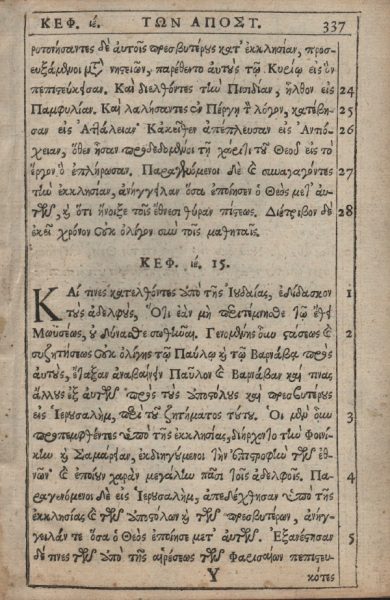 ΚΕΦ. ιέ. ΤΩΝ ΑΠΟΣΤ. 337
ροτονήσαντες δὲ αὐτοῖς πρεσβυτέρους κατ' ἐκκλησίαν, προσ-
ευξάμενοι μετὰ νηστειῶν, παρέθεντο αὐτοὺς τῷ Κυρίῳ εἰς ὃν
πεπιστεύκεισαν. Καὶ διελθόντες τὴν Πισιδίαν, ἦλθον εἰς 24
Παμφυλίαν. Καὶ λαλήσαντες ἐν Πέργῃ τὸν λόγον, κατέβη- 25
σαν εἰς Ἀττάλειαν Κἀκεῖθεν ἀπέπλευσαν εἰς Ἀντιό- 26
χειαν, ὅθεν ἦσαν παραδεδομένοι τῇ χάριτι τοῦ Θεοῦ εἰς τὸ
ἔργον ὃ ἐπλήρωσαν. Παραγενόμενοι δὲ καὶ συναγαγόντες 27
τὴν ἐκκλησίαν, ἀνήγγειλαν ὅσα ἐποίησεν ὁ Θεὸς μετ' αὐ-
τῶν, καὶ ὅτι ἤνοιξε τοῖς ἔθνεσι θύραν πίστεως. Διέτριβον δὲ 28
ἐκεῖ χρόνον οὐκ ὀλίγον σὺν τοῖς μαθηταῖς.
ΚΕΦ. ιέ. 15.
ΚΑί τινες κατελθόντες ἀπὸ τῆς Ἰουδαίας, ἐδίδασκον 1
τοὺς ἀδελφοὺς, Ὅτι ἐὰν μὴ περιτέμνησθε τῷ ἔθει
Μωϋσέως, οὐ δύνασθε σωθῆναι. Γενομένης οὖν στάσεως καὶ 2
συζητήσεως οὐκ ὀλίγης τῷ Παύλῳ καὶ τῷ Βαρνάβᾳ πρὸς
αὐτοὺς, ἔταξαν ἀναβαίνειν Παῦλον καὶ Βαρνάβαν καί τινας
ἄλλους ἐξ αὐτῶν πρὸς τοὺς ἀποστόλους καὶ πρεσβυτέρους
εἰς Ἱερουσαλὴμ, περὶ τοῦ ζητήματος τούτου. Οἱ μὲν οὖν 3
προπεμφθέντες ὑπὸ τῆς ἐκκλησίας, διήρχοντο τὴν Φοινί-
κην καὶ Σαμάρειαν, ἐκδιηγούμενοι τὴν ἐπιστροφὴν τῶν ἐθ-
νῶν· καὶ ἐποίουν χαρὰν μεγάλην πᾶσι τοῖς ἀδελφοῖς. Πα- 4
ραγενόμενοι δὲ εἰς Ἱερουσαλὴμ, ἀπεδέχθησαν ὑπὸ τῆς
ἐκκλησίας καὶ τῶν ἀποστόλων καὶ τῶν πρεσβυτέρων, ἀνήγ-
γειλάν τε ὅσα ὁ Θεὸς ἐποίησε μετ' αὐτῶν. Ἐξανέστησαν 5
δέ τινες τῶν ἀπὸ τῆς αἱρέσεως τῶν Φαρισαίων πεπιστευ-
Y κότες